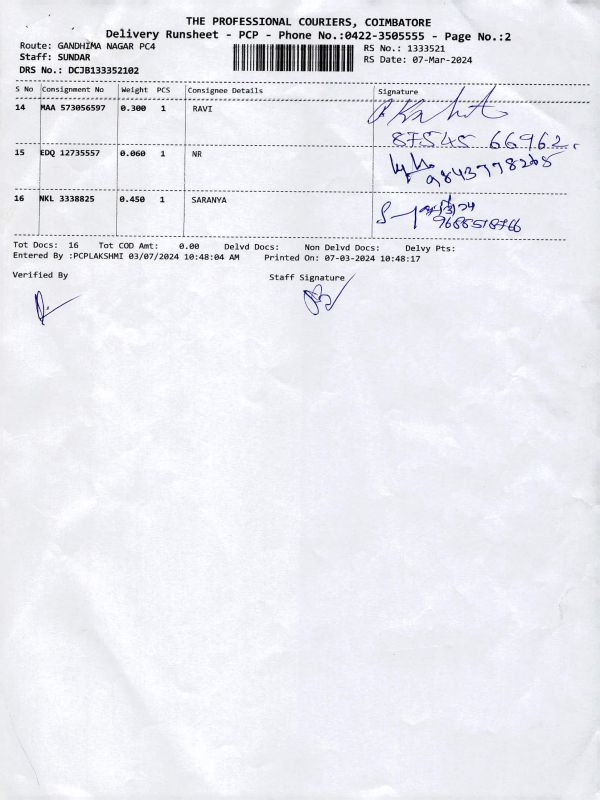 THE PROFESSIONAL COURIERS, COIMBATORE
Delivery Runsheet - PCP - Phone No.:0422-3505555 - Page No.:2
Route: GANDHIMA NAGAR PC4 RS No.: 1333521
Staff: SUNDAR RS Date: 07-Mar-2024
DRS No.: DCJB133352102
S No Consignment No Weight PCS Consignee Details Signature
14 MAA 573056597 0.300 1 RAVI
87545 66962.
15 EDQ 12735557 0.060 1 NR
9843778265
16 NKL 3338825 0.450 1 SARANYA
Tot Docs: 16 Tot COD Amt: 0.00 Delvd Docs: Non Delvd Docs: Delvy Pts:
Entered By :PCPLAKSHMI 03/07/2024 10:48:04 AM Printed On: 07-03-2024 10:48:17
Verified By Staff Signature